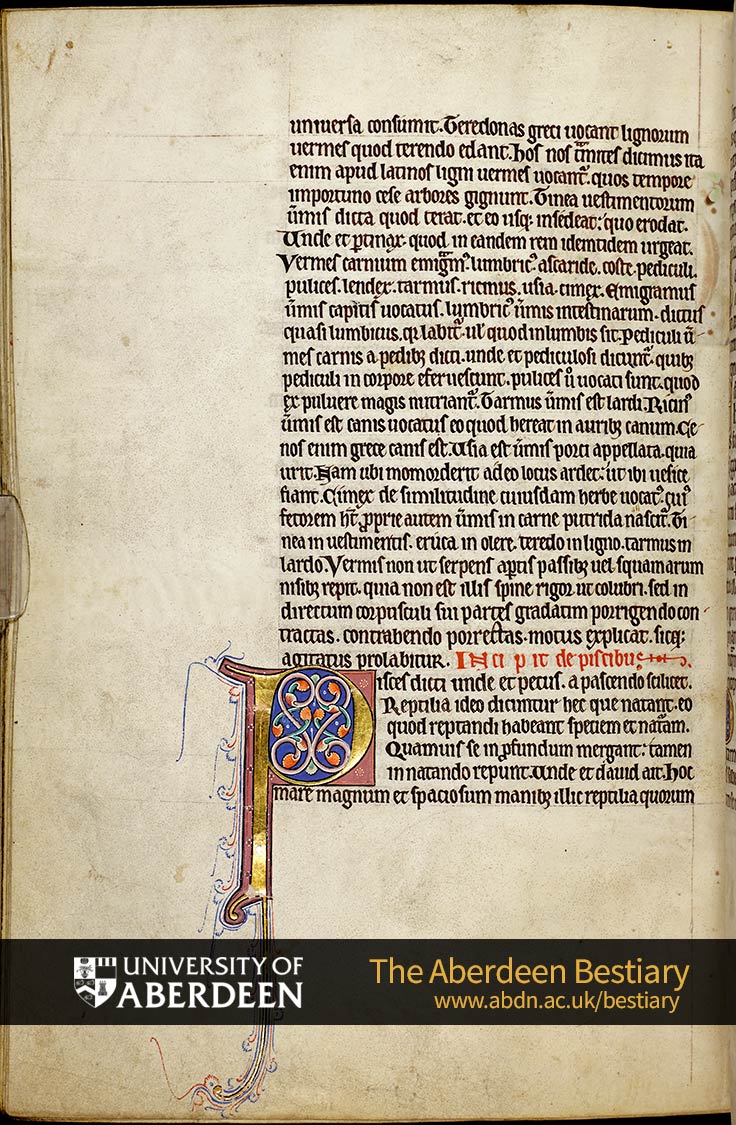 uniuersa consumit. Teredonas greci uocant lignorum
uermes quod terendo edant. hos nos tmites dicimus ita
enim apud latinos ligni uermes uocant̄. quos tempore
importuno cese arbores gignunt. Tinea uestimentorum
ūmis dicta quod terat. et eo usq; insedeat: quo erodat.
Unde et ptinax. quod in eandem rem identidem urgeat.
Vermes carnium emigm̄. lumbric̄. ascaride. coste. pediculi.
pulices. lendex. tarmus. ricinus. usia. cimex. Emigramus
ūmis capitis uocatus. lumbric̄ ūmis intestinarum. dictus
quasi lumbicus. q̄ labit̄. ul̄ quod in lumbis sit. Pediculi ū
mes carnis a pedib; dicti. unde et pediculosi dicunt̄. quib;
pediculi in corpore eferuescunt. pulices ū uocati sunt. quod
ex puluere magis nutriant̄. Tarmus ūmis est lardi. Ricin̄
ūmis est canis uocatus eo quod hereat in aurib; canum. Ce
nos enim grece canis est. Usia est ūmis porci appellata. quia
urit. Nam ubi momorderit adeo locus ardet: ut ibi uesice
fiant. Cimex de similitudine cuiusdam herbe uocat̄. cuī
fetorem ht̄. pprie autem ūmis in carne putrida nascit̄. Ti
nea in uestimentis. eruca in olere. teredo in ligno. tarmus in
lardo. Vermis non ut serpens aptis passib; uel squamarum
nisib; repit. quia non est illis spine rigor ut colubri. sed in
directum corpusculi sui partes gradatim porrigendo con
tractas. contrahendo porrectas. motus explicat. sicq;
agitatus prolabitur. Incipit de piscibus
Pisces dicti unde et pecus. a pascendo scilicet.
Reptilia ideo dicuntur hec que natant. eo
quod reptandi habeant speciem et nat̄am.
Quamuis se in pfundum mergant: tamen
in natando repunt. Unde et dauid ait. Hoc
mare magnum et spaciosum manib; illic reptilia quorum
UNIVERSITY OF
ABERDEEN
The Aberdeen Bestiary
www.abdn.ac.uk/bestiary